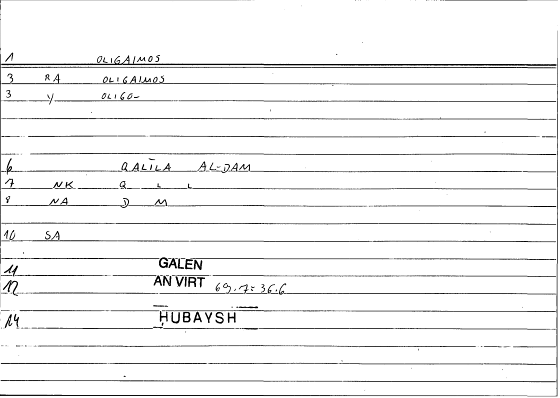 1 OLIGAIMOS
3 RA OLIGAIMOS
3 Y OLIGO-
6 QALĪLA AL-DAM
7 NK Q L L
8 NA D M
10 SA
11 GALEN
12 AN VIRT 69.7=36.6
14 ḤUBAYSH